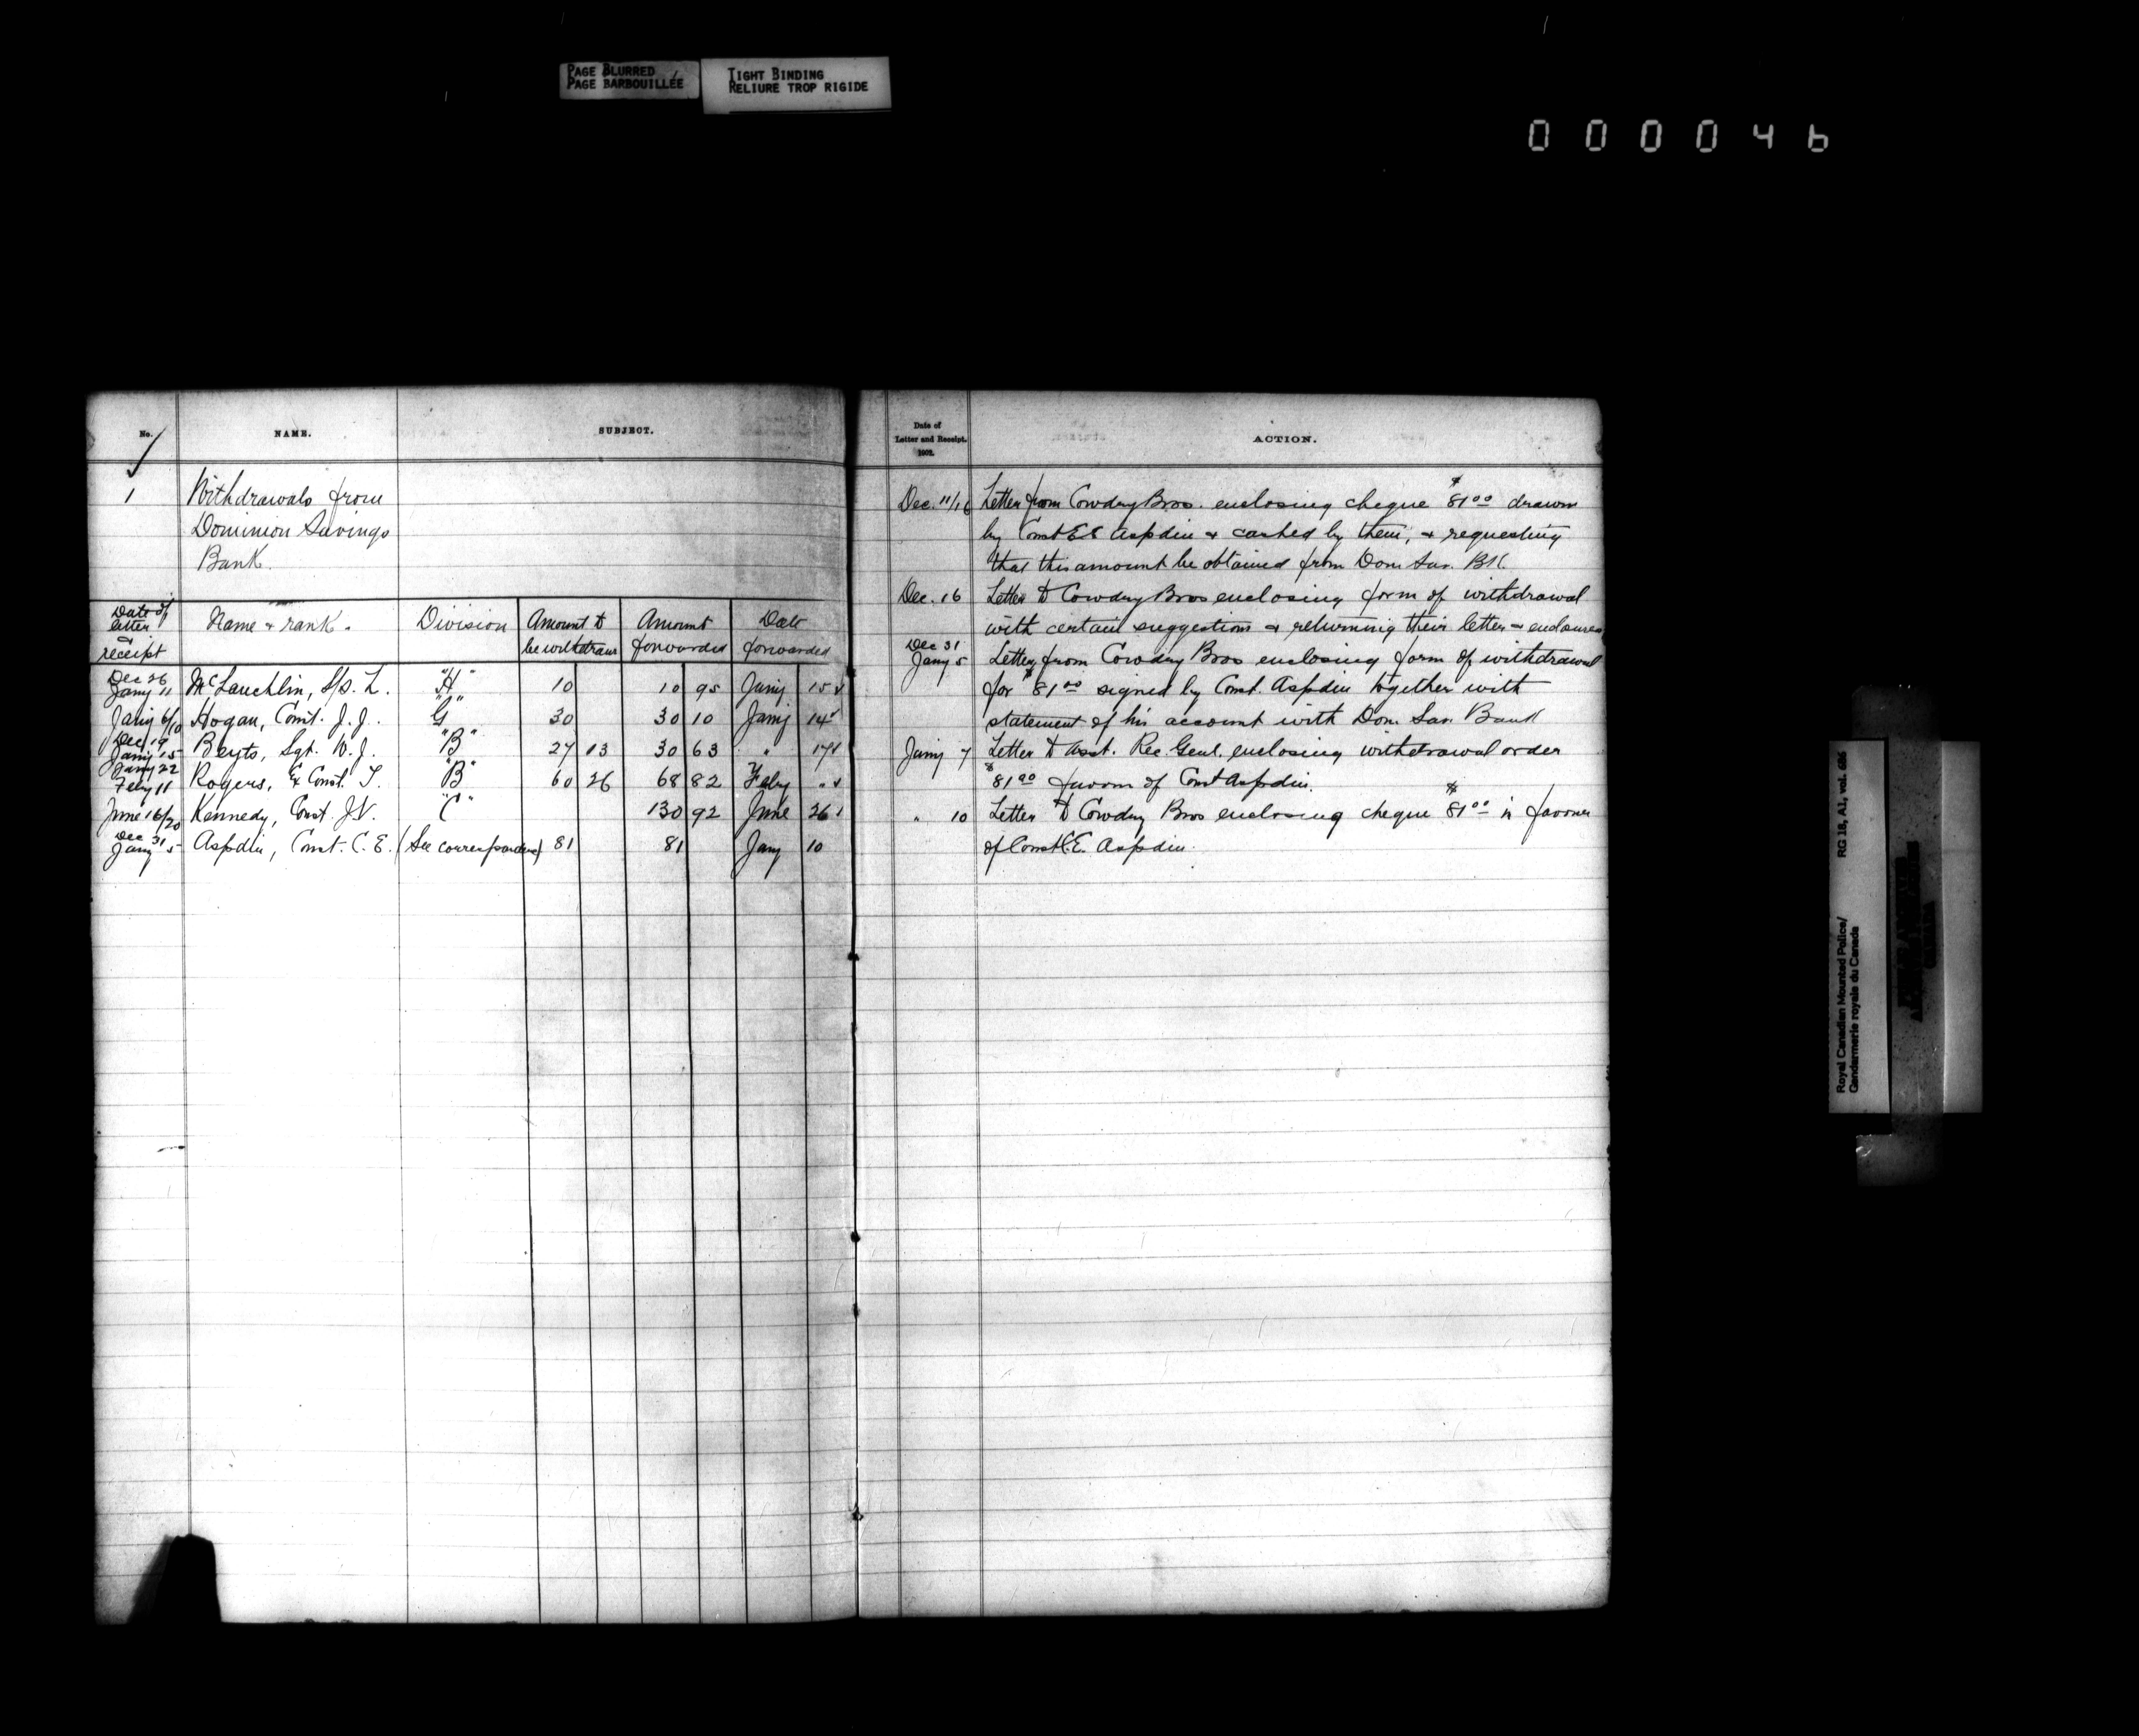 PAGE BLURRED
PAGE BARBOUILLÉE
TIGHT BINDING
RELIURE TROP RIGIDE
000046
No. NAME. SUBJECT.
1 Withdrawals from
Dominion Savings
Bank.
Date of letter & receipt Name & rank. Division Amount to be withdrawn Amount forwarded Date forwarded
Dec 26 Jany 11 McLauchlin, S/S. L. "H" 10 10 95 Jany 15
Jany 6/10 Hogan, Const. J. J. "G" 30 30 10 Jany 14
Dec 19 Jany 15 Beyts, Sgt. W. J. "B" 27 13 30 63 " 17
Jany 22 Feby 11 Rogers, Ex Const. T. "B" 60 26 68 82 Feby "
June 16/20 Kennedy, Const. J.V. "C" 130 92 June 26
Dec 31 Jany 5 Aspdin, Const. C. E. (See correspondence) 81 81 Jany 10
Date of
Letter and Receipt.
1902.
ACTION.
Dec. 11/16 Letter from Cowdry Bros. enclosing cheque $81.00 drawn
by Const Aspdin & cashed by them, & requesting
that this amount be obtained from Dom Sav. BK.
Dec. 16 Letter to Cowdry Bros enclosing form of withdrawal
with certain suggestions & returning their letter & enclosures
Dec 31 Jany 5 Letter from Cowdry Bros enclosing form of withdrawal
for $81.00 signed by Const. Aspdin together with
statement of his account with Dom. Sav. Bank
Jany 7 Letter to Asst. Rec. Genl. enclosing withdrawal order
$81.00 favour of Const Aspdin.
" 10 Letter to Cowdry Bros enclosing cheque $81.00 in favour
of Const C.E. Aspdin.
Royal Canadian Mounted Police/
Gendarmerie royale du Canada
RG 18, A1, vol. 686